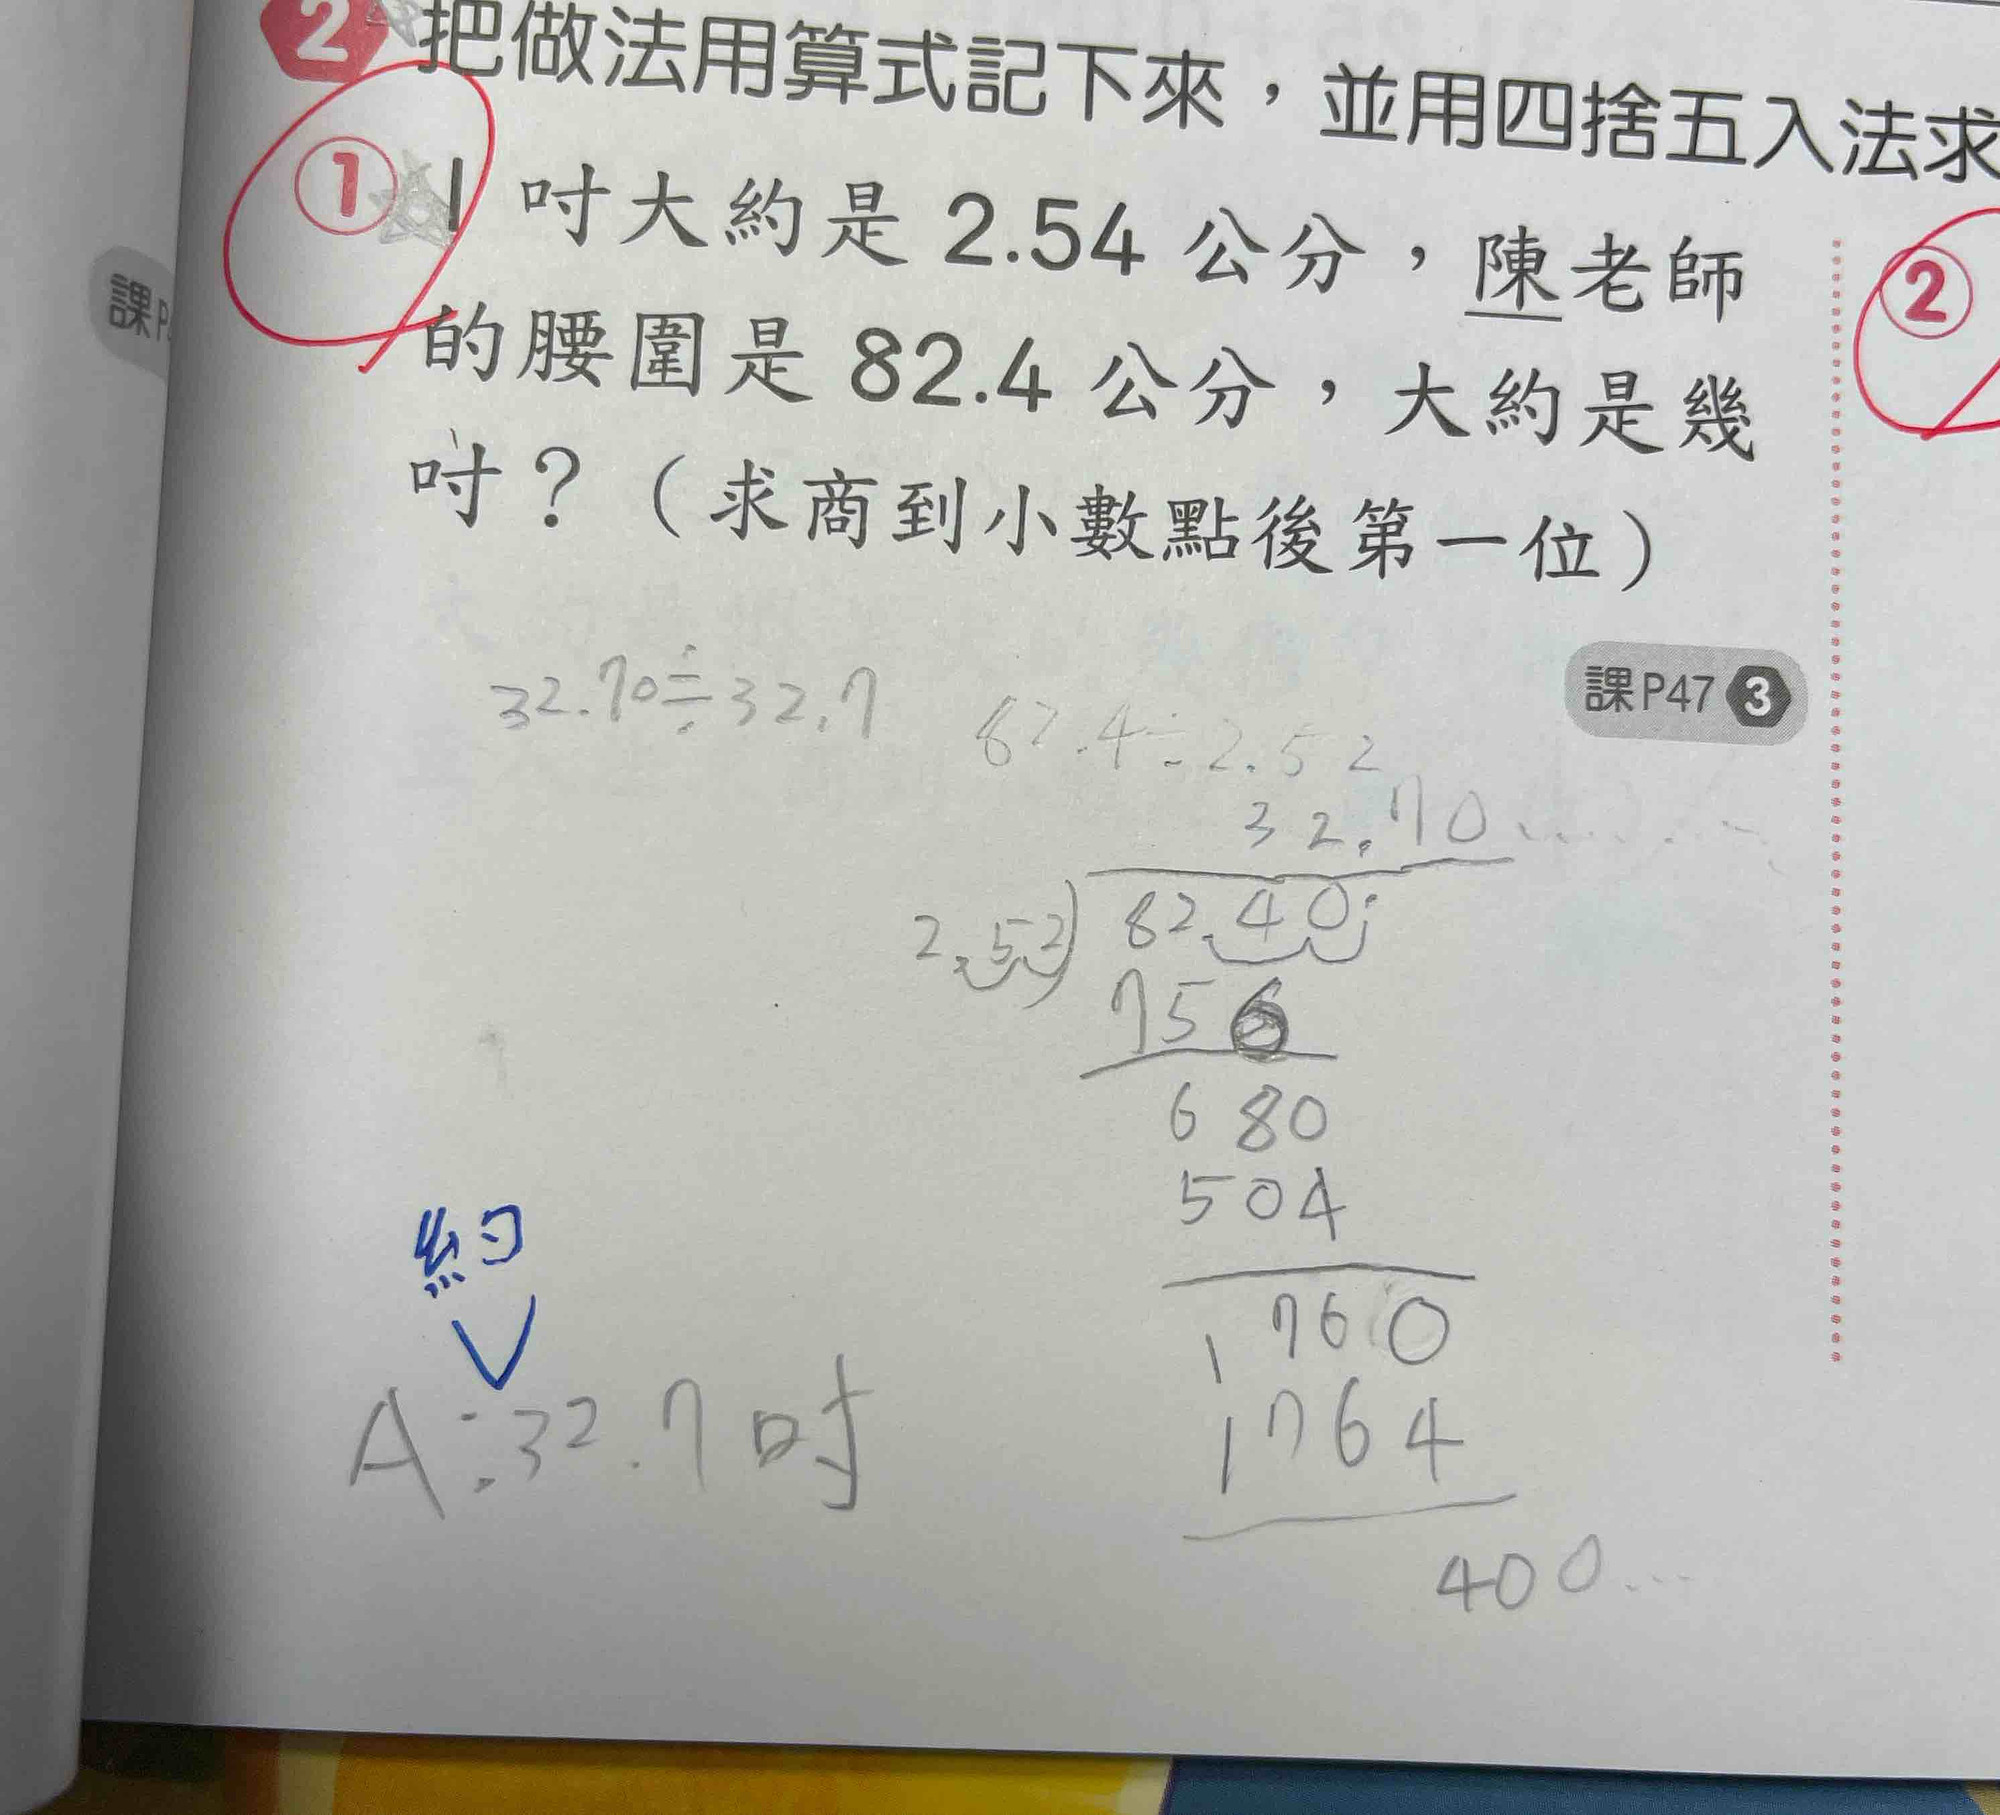 2 把做法用算式記下來，並用四捨五入法求
① 1 吋大約是 2.54 公分，陳老師
的腰圍是 82.4 公分，大約是幾
吋？（求商到小數點後第一位）
②
課P
課P47 3
32.70÷32.7
82.4÷2.52
32.70......
2.52)82.40
756
680
504
1760
1764
400...
約
A:32.7吋